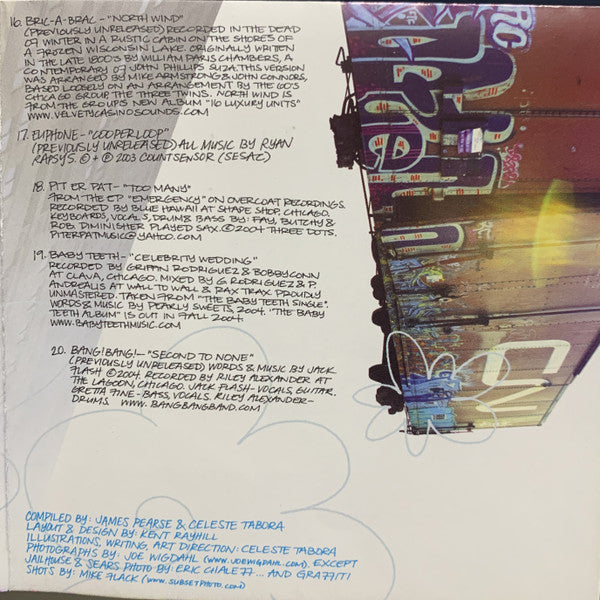 16. BRIC-A-BRAC - "NORTH WIND"
(PREVIOUSLY UNRELEASED) RECORDED IN THE DEAD
OF WINTER IN A RUSTIC CABIN ON THE SHORES OF
A FROZEN WISCONSIN LAKE. ORIGINALLY WRITTEN
IN THE LATE 1800'S BY WILLIAM PARIS CHAMBERS, A
CONTEMPORARY OF JOHN PHILLIPS SUZA. THIS VERSION
WAS ARRANGED BY MIKE ARMSTRONG & JOHN CONNORS,
BASED LOOSELY ON AN ARRANGEMENT BY THE 60'S
CHICAGO GROUP, THE THREE TWINS. NORTH WIND IS
FROM THE GROUPS NEW ALBUM "16 LUXURY UNITS"
WWW.VELVETYCASINOSOUNDS.COM
17. EUPHONE - "COOPERLOOP"
(PREVIOUSLY UNRELEASED) ALL MUSIC BY RYAN
RAPSYS. © + ℗ 2003 COUNTSENSOR (SESAC)
18. PIT ER PAT - "TOO MANY"
FROM THE EP "EMERGENCY" ON OVERCOAT RECORDINGS.
RECORDED BY BLUE HAWAII AT SHAPE SHOP, CHICAGO.
KEYBOARDS, VOCALS, DRUMS & BASS BY: FAY, BUTCHY &
ROB. DIMINISHER PLAYED SAX. © 2004 THREE DOTS.
PITERPATMUSIC@YAHOO.COM
19. BABY TEETH - "CELEBRITY WEDDING"
RECORDED BY GRIFFIN RODRIGUEZ & BOBBY CONN
AT CLAVA, CHICAGO. MIXED BY G. RODRIGUEZ & P.
ANDREALIS AT WALL TO WALL & PAX TRAX. PROUDLY
UNMASTERED. TAKEN FROM "THE BABY TEETH SINGLE".
WORDS & MUSIC BY PEARLY SWEETS, 2004. "THE BABY
TEETH ALBUM" IS OUT IN FALL 2004.
WWW.BABYTEETHMUSIC.COM
20. BANG! BANG! - "SECOND TO NONE"
(PREVIOUSLY UNRELEASED) WORDS & MUSIC BY JACK
FLASH © 2004. RECORDED BY RILEY ALEXANDER AT
THE LAGOON, CHICAGO. JACK FLASH - VOCALS, GUITAR.
GRETTA FINE - BASS, VOCALS. RILEY ALEXANDER -
DRUMS. WWW.BANGBANGBAND.COM
COMPILED BY: JAMES PEARSE & CELESTE TABORA
LAYOUT & DESIGN BY: KENT RAYHILL
ILLUSTRATIONS, WRITING, ART DIRECTION: CELESTE TABORA
PHOTOGRAPHS BY: JOE WIGDAHL (WWW.JOEWIGDAHL.COM) EXCEPT
JAILHOUSE & SEARS PHOTO BY: ERIC CHALE77... AND GRAFFITI
SHOTS BY: MIKE FLACK (WWW.SUBSETPHOTO.COM)